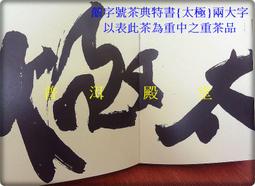 簡字號茶典特書{太極}兩大字
以表此茶為重中之重茶品
太極
普洱殿堂